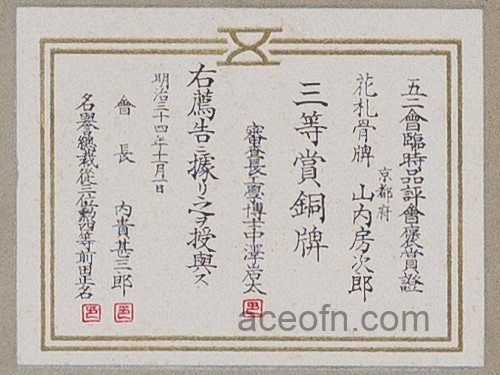 五二會臨時品評會褒賞證
京都府
花札骨牌 山内房次郎
三等賞銅牌
審査長工學博士中澤岩太
右薦告ニ據リ之ヲ授與ス
明治三十四年十一月一日
會長 内貴甚三郎
名譽總裁從三位勳四等前田正名
aceofn.com